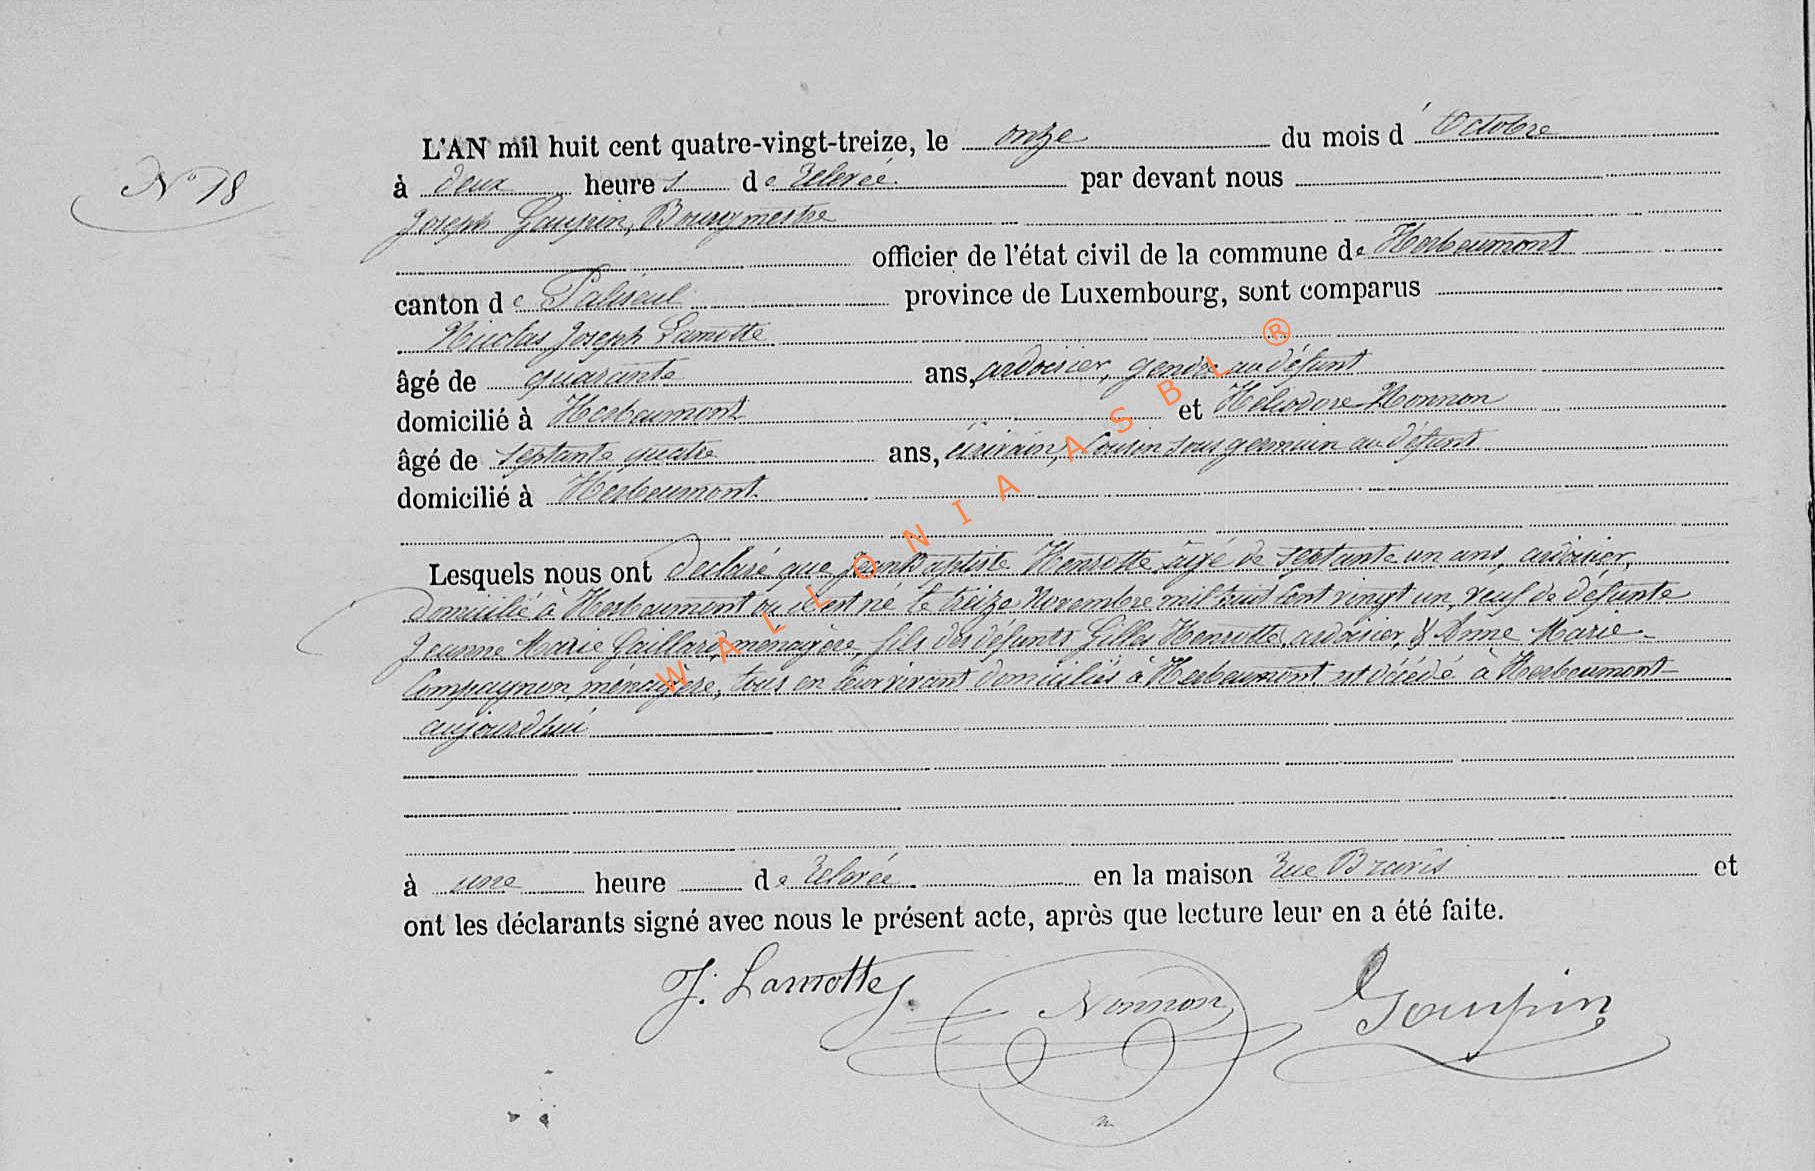 N° 18
L'AN mil huit cent quatre-vingt-treize, le onze du mois d'Octobre
à deux heures de relevée. par devant nous
Joseph Goupin, Bourgmestre
officier de l'état civil de la commune de Herbeumont
canton de Paliseul province de Luxembourg, sont comparus
Nicolas Joseph Lamotte
âgé de quarante ans, ardoisier, gendre au défunt
domicilié à Herbeumont et Héliodore Nonnon
âgé de septante quatre ans, écrivain, Cousin sous germain au défunt
domicilié à Herbeumont
Lesquels nous ont declaré que Jean Baptiste Henrotte âgé de septante un ans, ardoisier,
domicilié à Herbeumont où il est né le treize Novembre mil huit Cent vingt un, veuf de défunte
Jeanne Marie Gaillard, ménagère, fils des défunts Gilles Henrotte, ardoisier, & Anne Marie
Compagnon, ménagère, tous en leur vivant domiciliés à Herbeumont est décédé à Herbeumont
aujourdhui
à une heure de relevée. en la maison rue et
ont les déclarants signé avec nous le présent acte, après que lecture leur en a été faite.
J. Lamotte Nonnon Goupin
WALLONIA ASBL ®